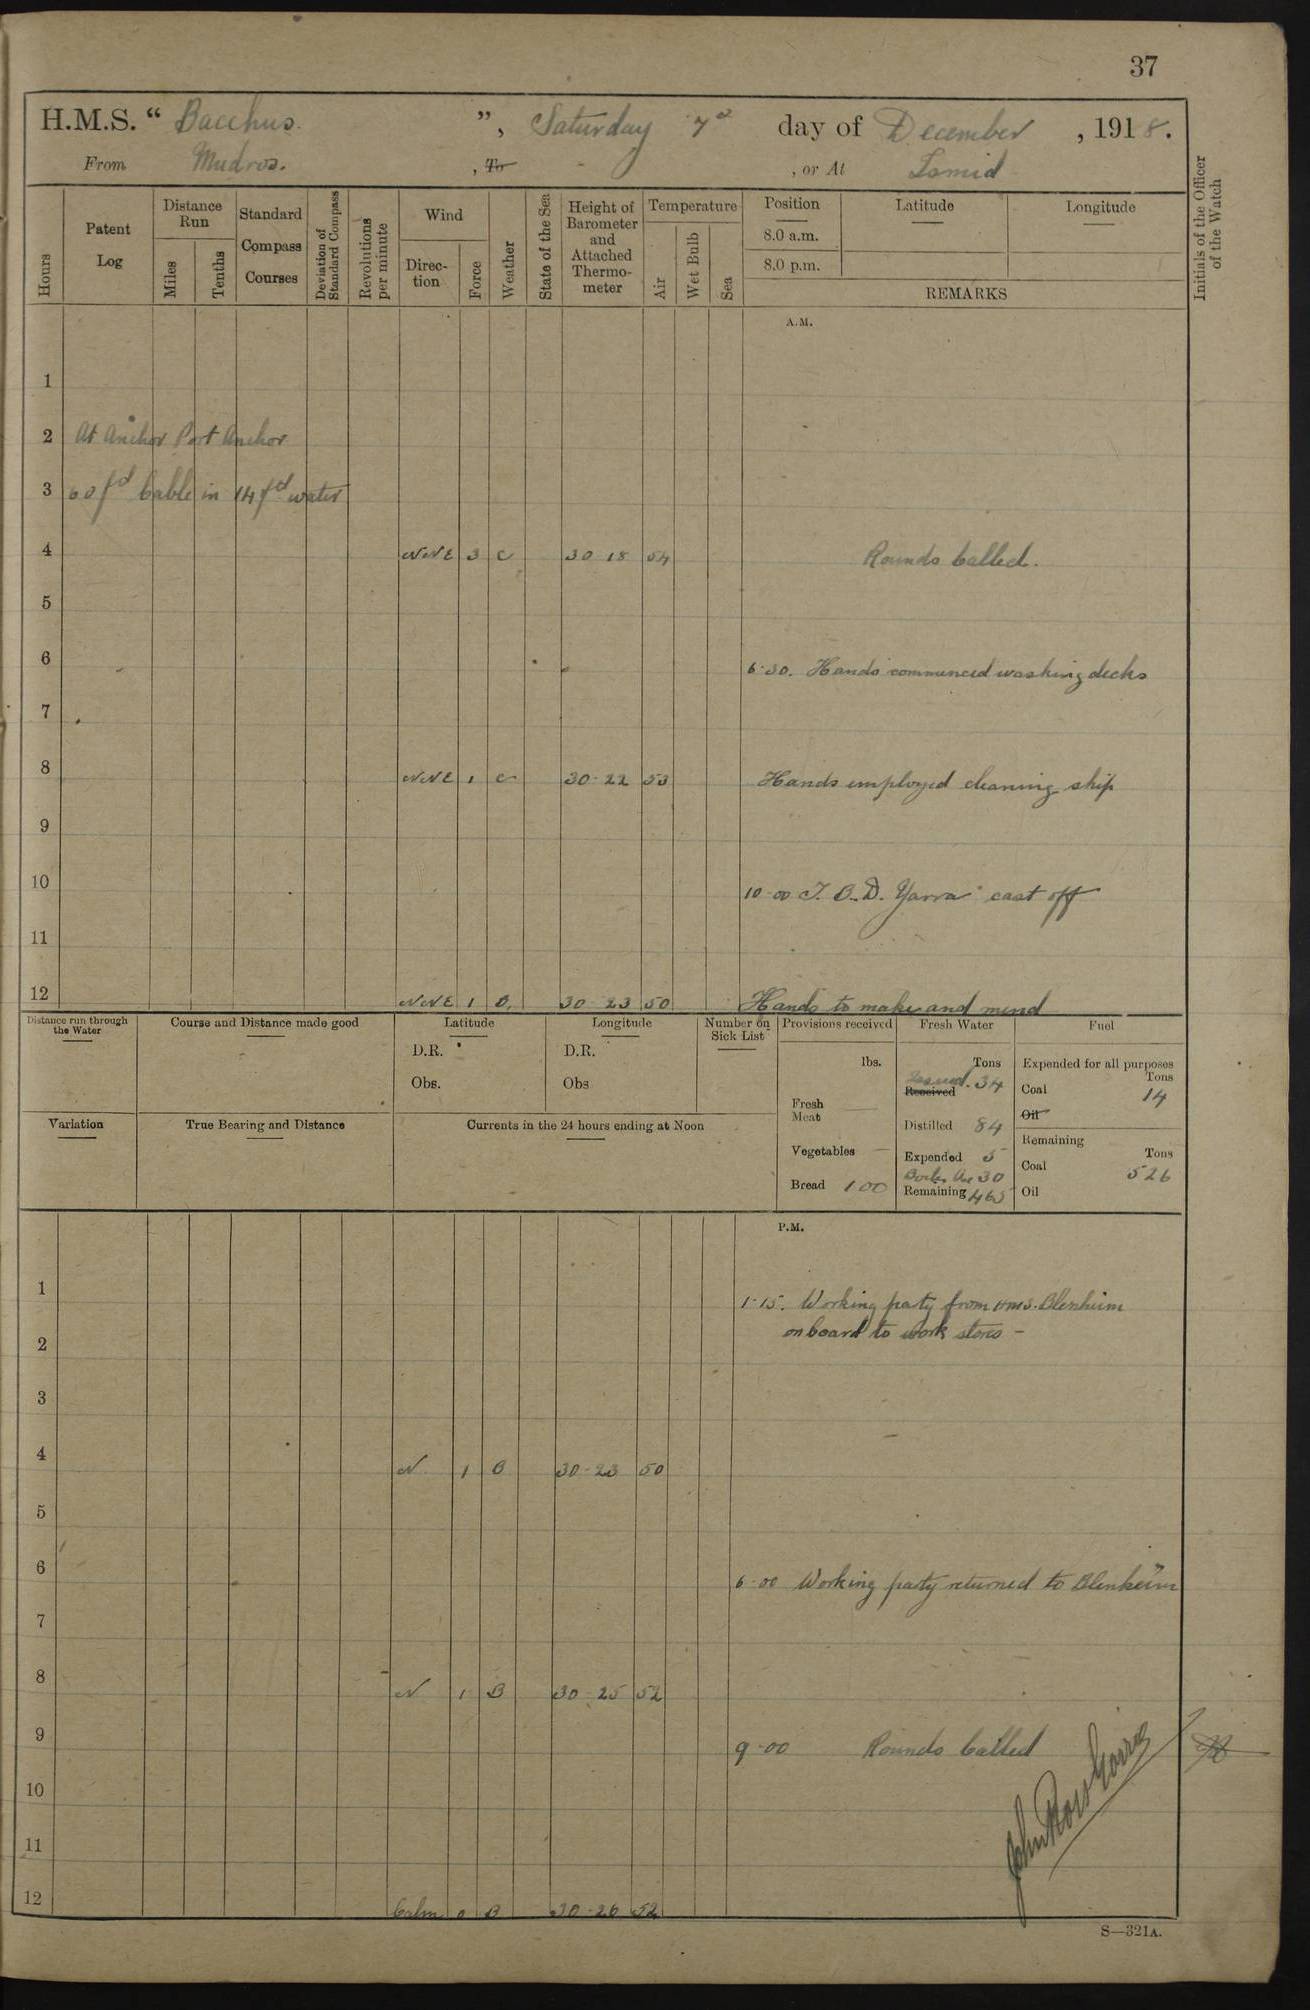 37
H.M.S. “ Bacchus. ”, Saturday 7th day of December , 1918.
From Mudros. , To , or At Ismid
Hours
Patent Log
Distance Run
Miles
Tenths
Standard Compass Courses
Deviation of Standard Compass
Revolutions per minute
Wind
Direction
Force
Weather
State of the Sea
Height of Barometer and Attached Thermometer
Temperature
Air
Wet Bulb
Sea
Position
8.0 a.m.
8.0 p.m.
Latitude
Longitude
REMARKS
Initials of the Officer of the Watch
A.M.
1
2 At Anchor Port Anchor
3 60 fd Cable in 14 fd water
4 NNE 3 C 30-18 54 Rounds Called.
5
6 6-30. Hands commenced washing decks
7
8 NNE 1 C 30-22 53 Hands employed cleaning ship
9
10 10-00 T.B.D. Yarra cast off
11
12 NNE 1 B. 30-23 50 Hands to make and mend
Distance run through the Water
Course and Distance made good
Latitude
D.R.
Obs.
Longitude
D.R.
Obs
Number on Sick List
Provisions received
lbs.
Fresh Meat —
Vegetables —
Bread 100
Fresh Water
Tons
Issued 34
Received
Distilled 84
Expended 5
30
Remaining 465
Fuel
Expended for all purposes
Tons
Coal 14
Oil
Remaining
Tons
Coal 526
Oil
Variation
True Bearing and Distance
Currents in the 24 hours ending at Noon
P.M.
1 1-15. Working party from HMS. Blenheim
on board to work stores –
2
3
4 N 1 B 30-23 50
5
6 6-00 Working party returned to Blenheim
7
8 N 1 B 30-25 52
9 9-00 Rounds Called
10
11
12 Calm 0 B 30-26 52
John
S—321A.